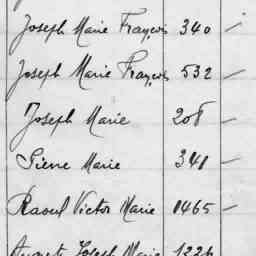 Joseph Marie François 340 —
Joseph Marie François 532 —
Joseph Marie 208 —
Pierre Marie 341 —
Raoul Victor Marie 1465 —
Auguste Joseph Marie 1226